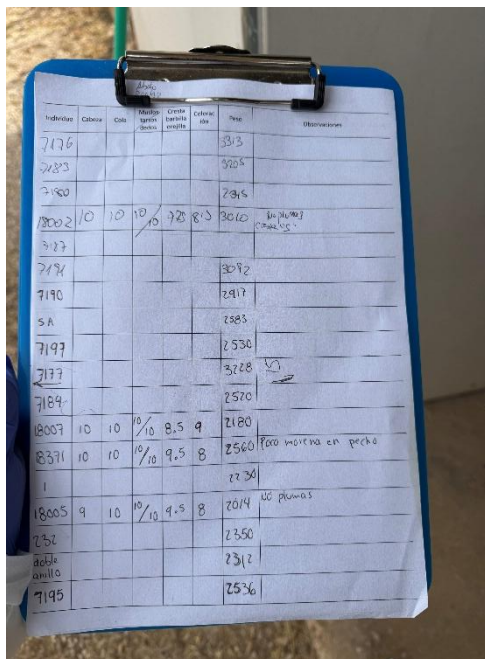 Individuo Cabeza Cola Muslos tarsos dedos Cresta barbilla orejilla Colorac ión Peso Observaciones
7176 3313
7183 3205
7180
18002 10 10 10/10 8.5 3010 plumas
7191 3092
7190 2917
SA 2583
7197 2530
7177 3228
7184 2520
18007 10 10 10/10 8.5 9 2180
18371 10 10 10/10 9.5 8 2560 Poco morena en pecho
1 2230
18005 9 10 10/10 9.5 8 2014 no plumas
232 2350
doble anillo 2312
7195 2536